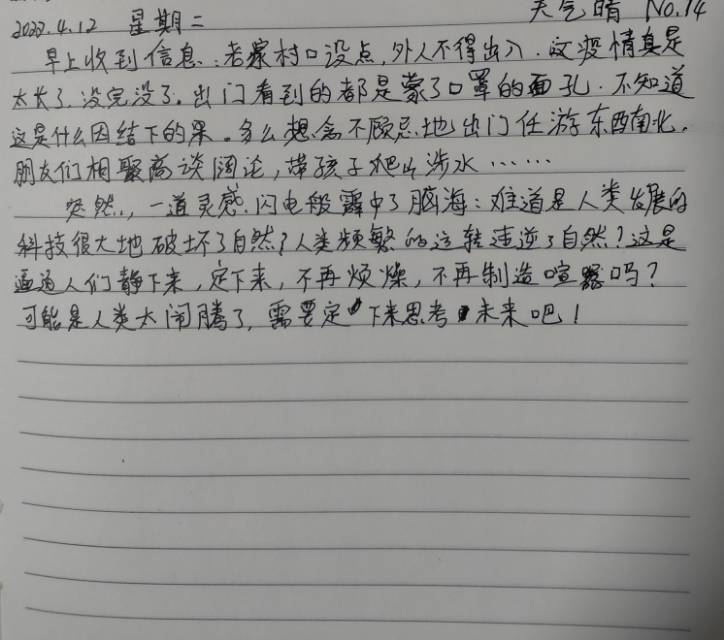 2022.4.12 星期二 天气晴 No.14
早上收到信息:老家村口设点,外人不得出入.这疫情真是
太长了.没完没了.出门看到的都是蒙了口罩的面孔.不知道
这是什么因结下的果.多么想念不顾忌地出门任游东西南北,
朋友们相聚高谈阔论,带孩子爬山涉水……
突然,一道灵感闪电般霹中了脑海:难道是人类发展的
科技很大地破坏了自然?人类频繁的运转违逆了自然?这是
逼迫人们静下来,定下来,不再烦燥,不再制造喧嚣吗?
可能是人类太闹腾了,需要定下来思考未来吧!